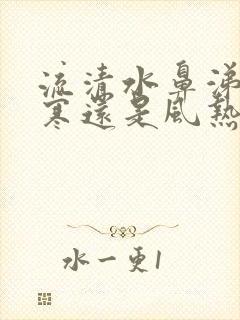 流清水鼻涕
寒還是風熱
水一更1